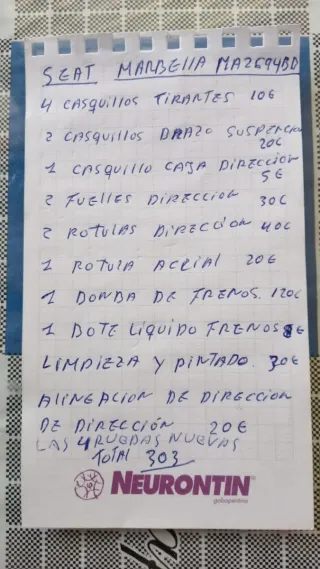 SEAT MARBELLA MA2694BD
4 CASQUILLOS TIRANTES 10€
2 CASQUILLOS BRAZO SUSPENCION
20€
1 CASQUILLO CAJA DIRECCION
5€
2 FUELLES DIRECCION 30€
2 ROTULAS DIRECCION 40€
1 ROTULA AXIAL 20€
1 BONBA DE FRENOS. 120€
1 BOTE LIQUIDO FRENOS 8€
LIMPIEZA Y PINTADO. 30€
ALINEACION DE DIRECCION
DE DIRECCIÓN 20€
LAS 4 RUEDAS NUEVAS
TOTAL 303
NEURONTIN
gabapentina